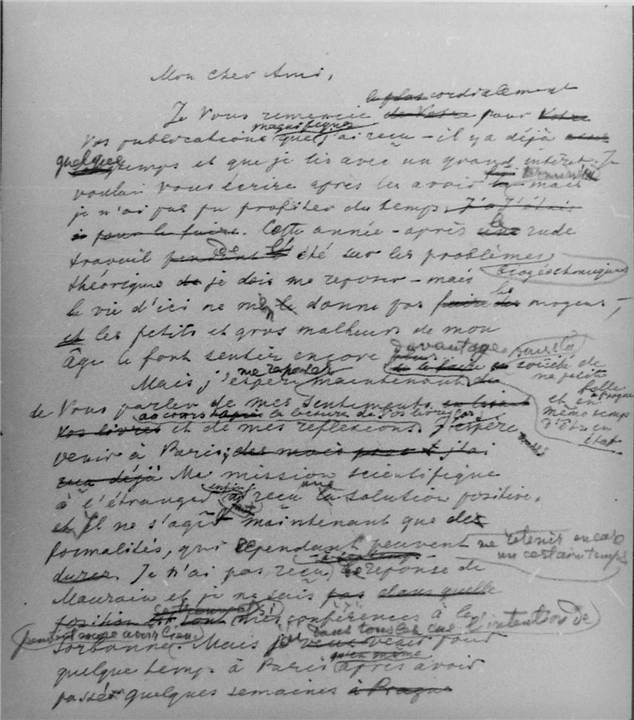 Mon cher Ami,
le plus cordialement
Je vous remercie de votre pour votre
magnifiques
vos publications que j'ai reçu - il y a déjà
quelque temps et que je lis avec un grand intérêt. Je
voulai vous écrire après les avoir mais
je n'ai pas pu profiter du temps.
pour le faire. Cette année - après rude
travail pendant été sur les problèmes
biogéochimiques
théorique je dois me reposer - mais
la vie d'ici ne me donne pas moyens,
et les petits et gros malheurs de mon
âge le font sentir encore
davantage
me reposer
Mais j'espère maintenant
de vous parler de mes sentiments
et en
même temps
d'être en
état
au cours après la lecture de vos livres
vos livres et de mes reflexions. J'espère
venir à Paris; des mois j'ai
déjà Ma mission scientifique
enfin une
à l'étranger a reçu la solution positive.
et Il ne s'agit maintenant que des
formalités, qui cependant peuvent
me retenir encore
un certain temps
durer. Je n'ai pas reçu la réponse de
Maurain et je ne sais pas dans quelle
se trouvent si
position et sont mes conférences à la
peuvent avoir lieu
vous tous les cas l'intention de
Sorbonne. Mais je veux venir pour
quelque temps à Paris après avoir
passé quelques semaines à Prague